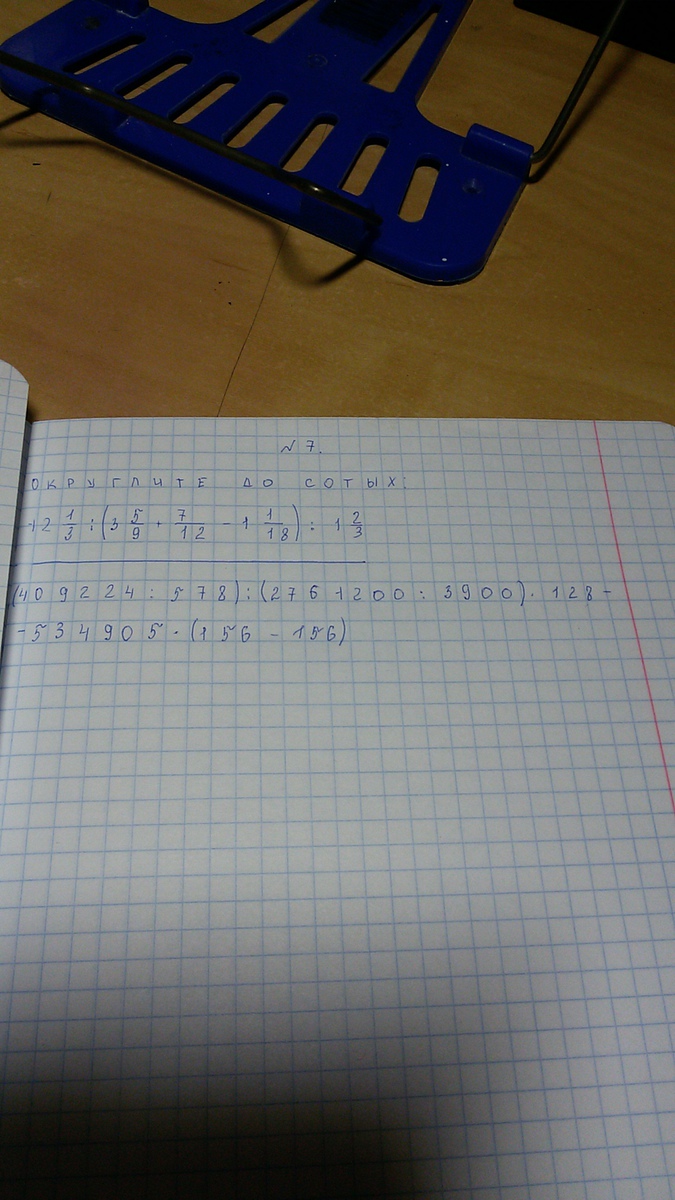 № 7.
ОКРУГЛИТЕ ДО СОТЫХ:
12 1/3 : (3 5/9 + 7/12 - 1 1/18) : 1 2/3
(409224 : 578) : (2761200 : 3900) · 128 -
- 534905 · (156 - 156)